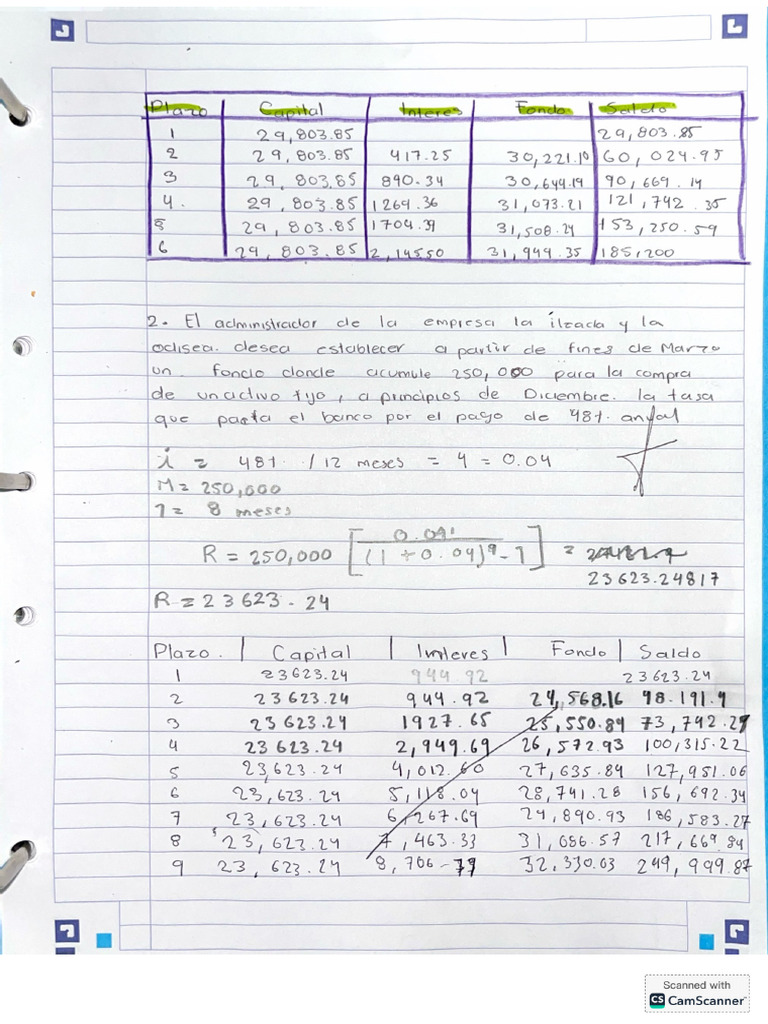 Plazo Capital Interes Fondo Saldo
1 29,803.85 29,803.85
2 29,803.85 417.25 30,221.10 60,024.95
3 29,803.85 840.34 30,644.19 90,669.14
4. 29,803.85 1269.36 31,073.21 121,742.35
5 29,803.85 1704.39 31,508.24 153,250.59
6 29,803.85 2,145.50 31,949.35 185,200
2. El administrador de la empresa la ilzada y la
odisea. desea establecer a partir de fines de Marzo
un fondo donde acumule 250,000 para la compra
de un activo fijo, a principios de Diciembre. la tasa
que pacta el banco por el pago de 48% anual
i = 48% /12 meses = 4 = 0.04
M= 250,000
n= 8 meses
R = 250,000 [0.04 / (1 + 0.04)9 - 1] =
23623.24817
R = 23623-24
Plazo. | Capital | Interes | Fondo | Saldo
1 23623.24 944 92 23623.24
2 23623.24 944.92 24,568.16 48.191.4
3 23623.24 1927.65 25,550.89 73,742.29
4 23623.24 2,949.69 26,572.93 100,315.22
5 23,623.24 4,012.60 27,635.84 127,951.06
6 23,623.24 5,118.04 28,741.28 156,692.34
7 23,623.24 6,267.69 29,890.93 186,583.27
8 23,623.24 7,463.33 31,086.57 217,669.84
9 23,623.24 8,706-79 32,330.03 249,999.87
Scanned with
CS CamScanner